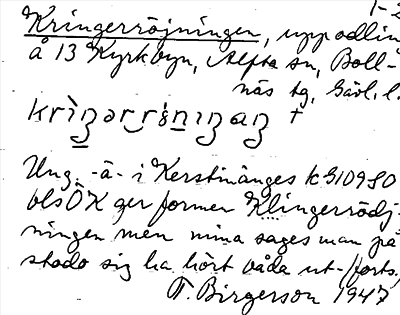 1-2
Kringerröjningen, uppodlin
å 13 Kyrkbyn, Alfta sn, Boll-
näs tg, Gävl. l.
Ung. -ä- i Kerstinänges
ÖK ger formen Klingerrödj-
ningen men mina sagesmän på-
stod sig ha hört båda ut-/forts.
T. Birgerson 1947